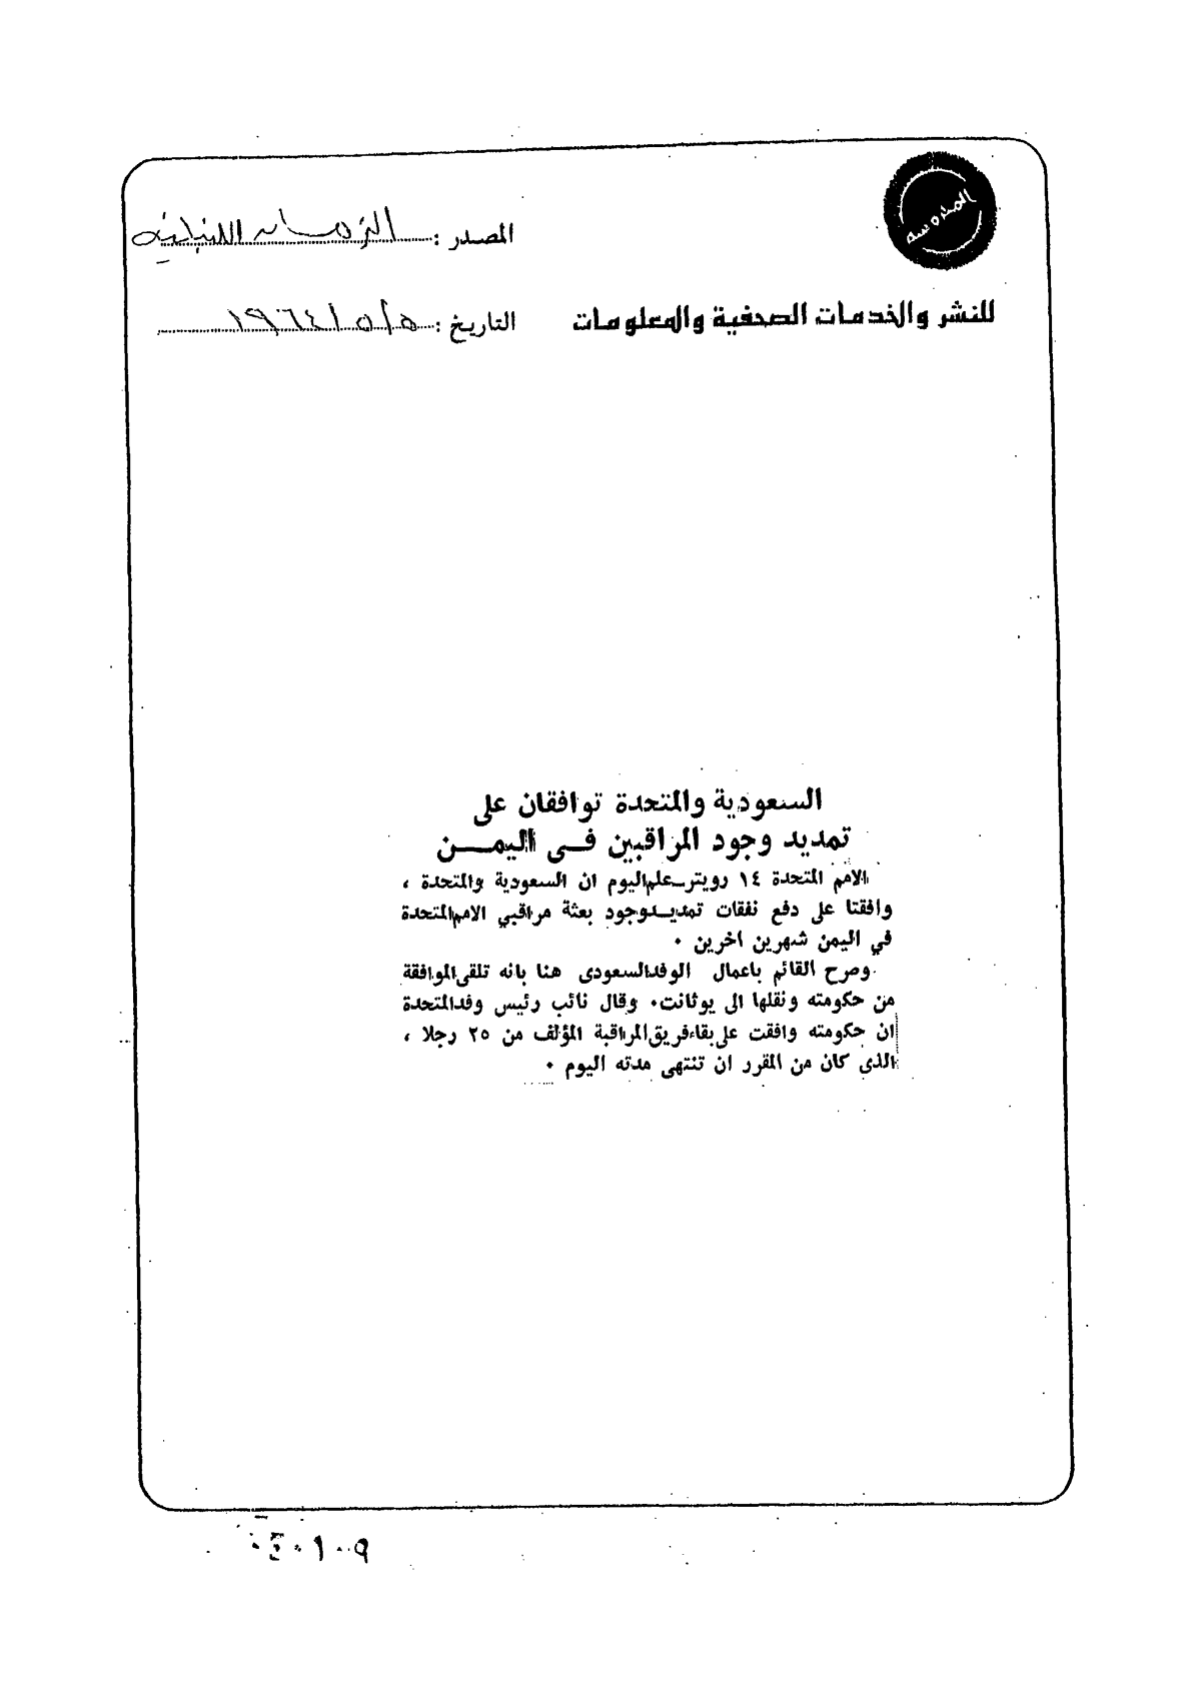 المصدر :
للنشر والخدمات الصحفية والمعلومات
التاريخ : ٥/٥/١٩٦٤
السعودية والمتحدة توافقان على
تمديد وجود المراقبين فى اليمن
الامم المتحدة ١٤ رويتر ـ علم اليوم ان السعودية والمتحدة ،
وافقتا على دفع نفقات تمديد وجود بعثة مراقبي الامم المتحدة
في اليمن شهرين اخرين ٠
وصرح القائم باعمال الوفد السعودى هنا بانه تلقى الموافقة
من حكومته ونقلها الى يوثانت ٠ وقال نائب رئيس وفد المتحدة
ان حكومته وافقت على بقاء فريق المراقبة المؤلف من ٢٥ رجلا ،
الذى كان من المقرر ان تنتهى مدته اليوم ٠